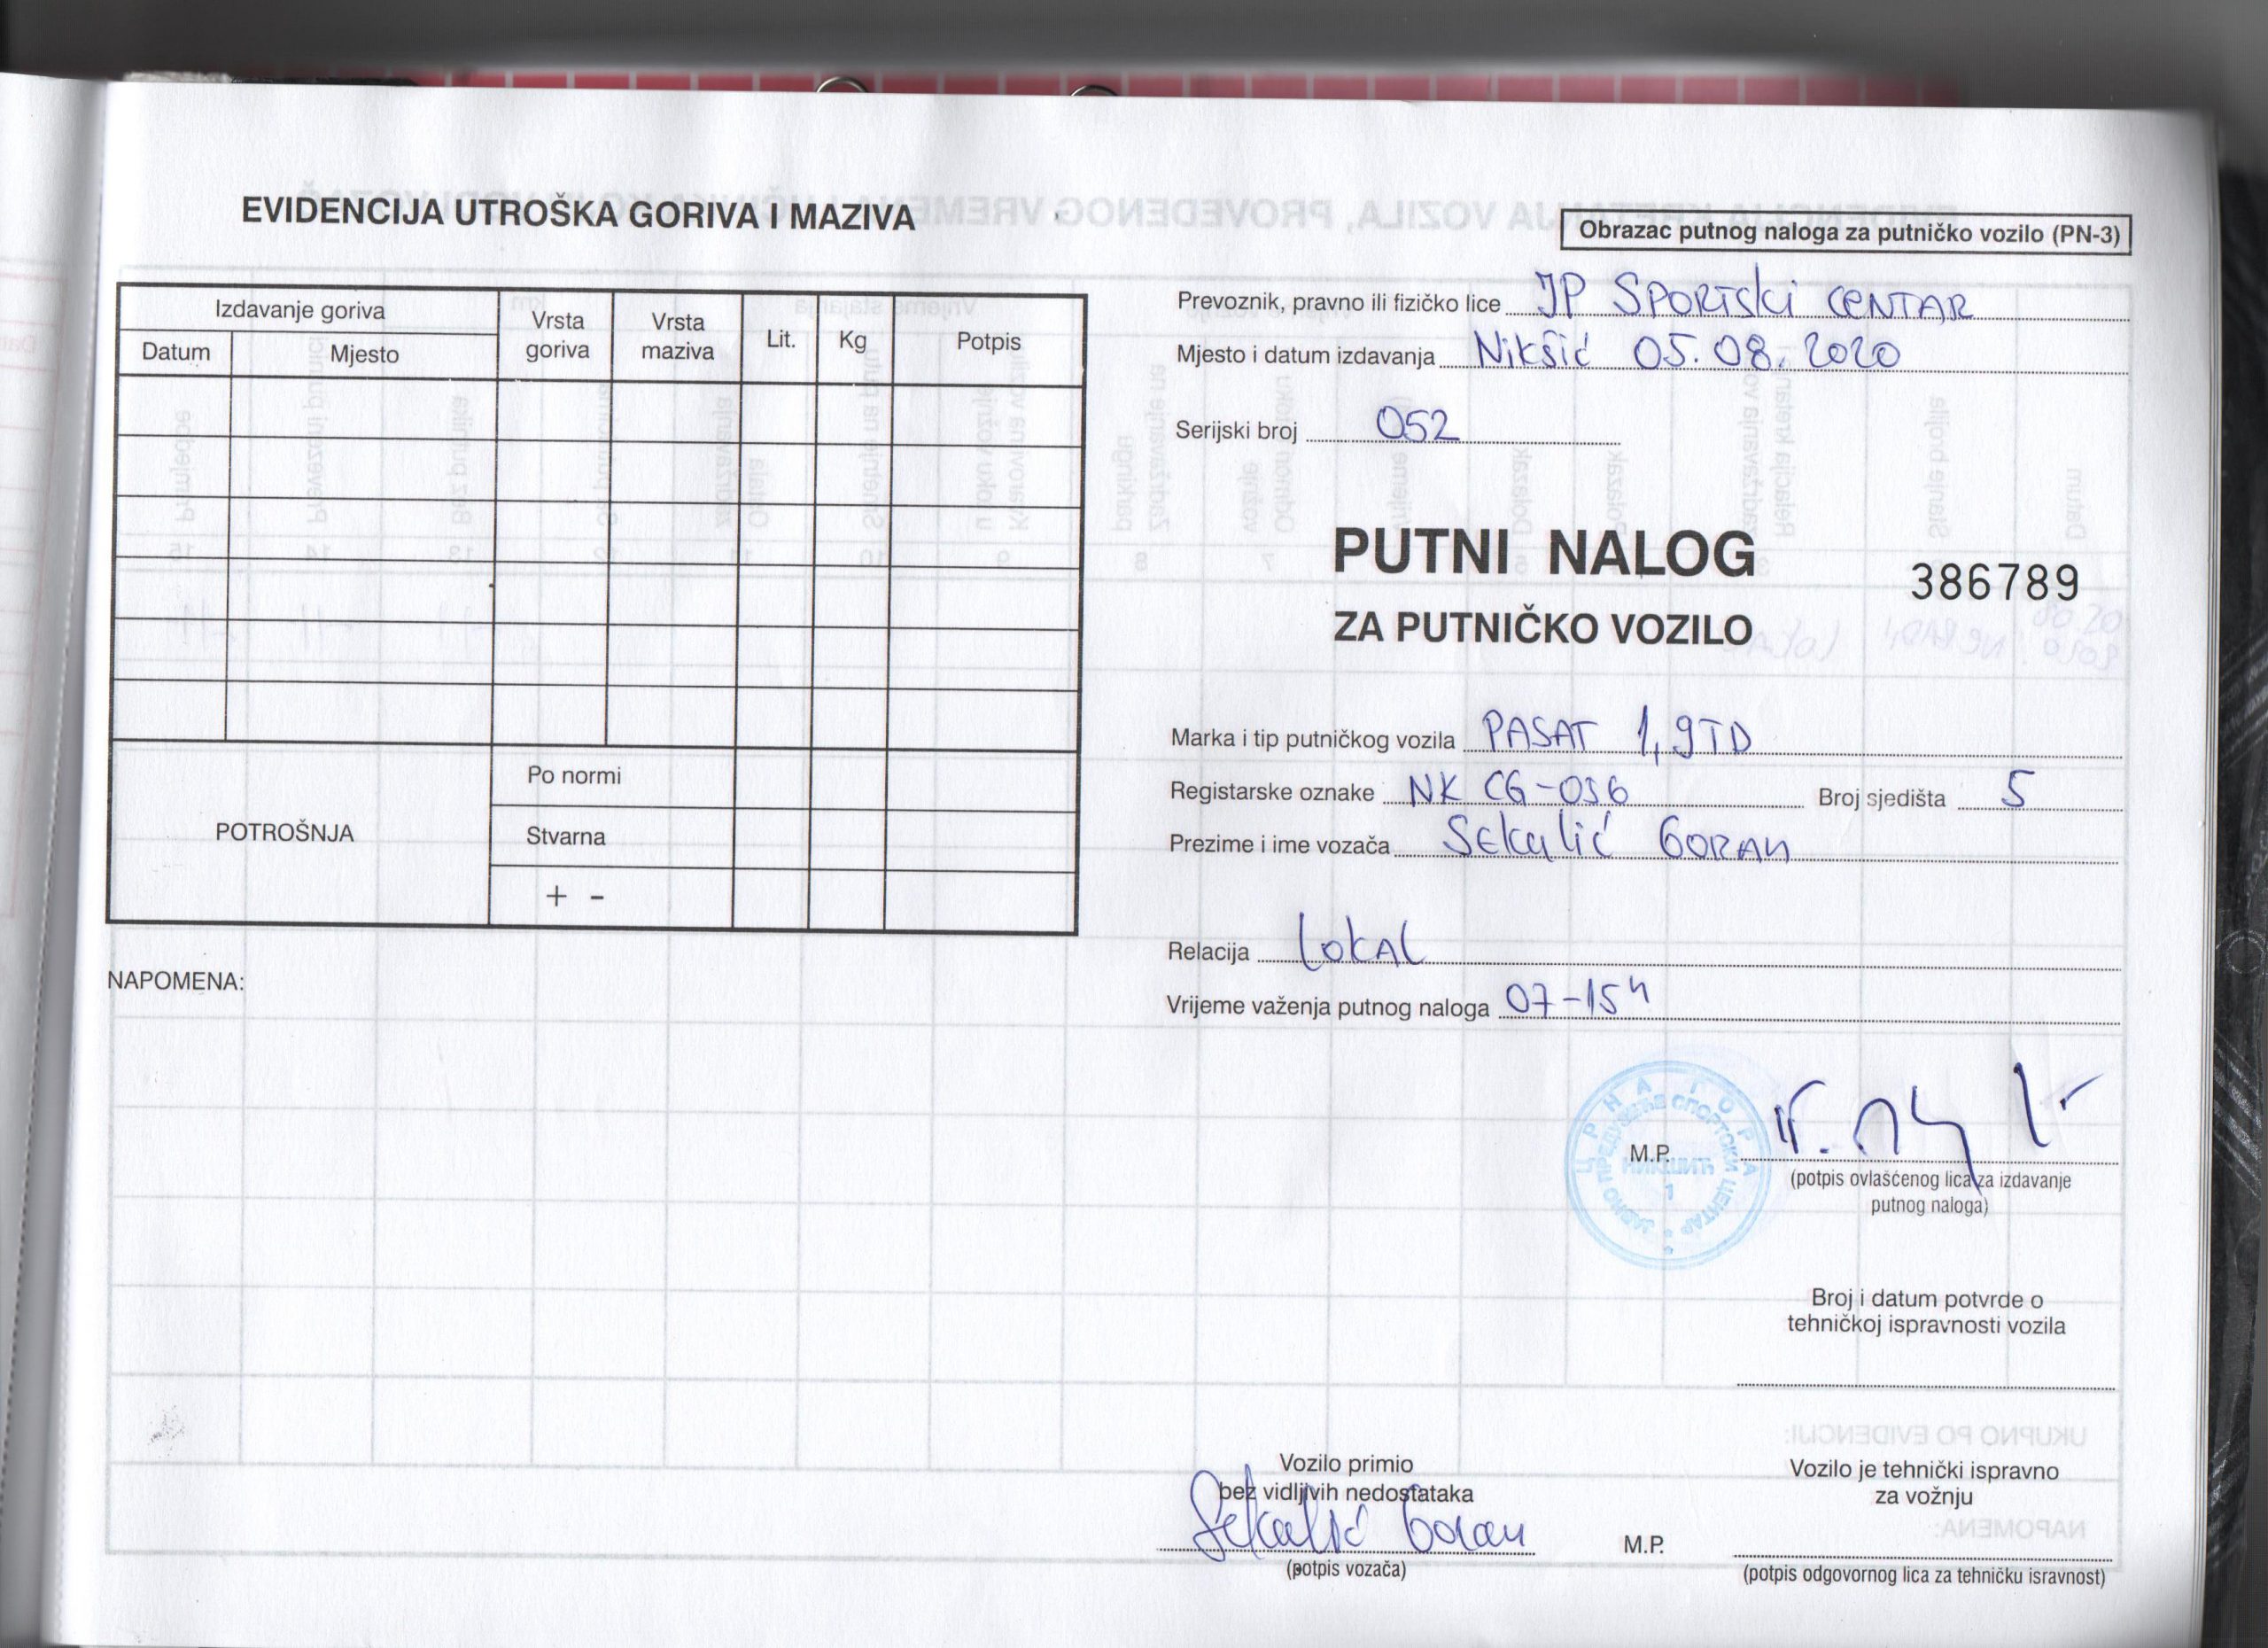 EVIDENCIJA UTROŠKA GORIVA I MAZIVA
Izdavanje goriva
Datum
Mjesto
Vrsta goriva
Vrsta maziva
Lit.
Kg
Potpis
POTROŠNJA
Po normi
Stvarna
+ -
NAPOMENA:
Obrazac putnog naloga za putničko vozilo (PN-3)
Prevoznik, pravno ili fizičko lice JP SPORTSki CENTAR
Mjesto i datum izdavanja Nikšić 05.08.2020
Serijski broj 052
PUTNI NALOG
386789
ZA PUTNIČKO VOZILO
Marka i tip putničkog vozila PASAT 1,9TD
Registarske oznake NK CG-036 Broj sjedišta 5
Prezime i ime vozača Sekulić GORAN
Relacija lokAl
Vrijeme važenja putnog naloga 07-15h
ЦРНА ГОРА
ЈАВНО ПРЕДУЗЕЋЕ СПОРТСКИ ЦЕНТАР
НИКШИЋ
1
M.P.
(potpis ovlašćenog lica za izdavanje
putnog naloga)
Broj i datum potvrde o
tehničkoj ispravnosti vozila
Vozilo primio
bez vidljivih nedostataka
Sekulić Goran
(potpis vozača)
Vozilo je tehnički ispravno
za vožnju
M.P.
(potpis odgovornog lica za tehničku isravnost)